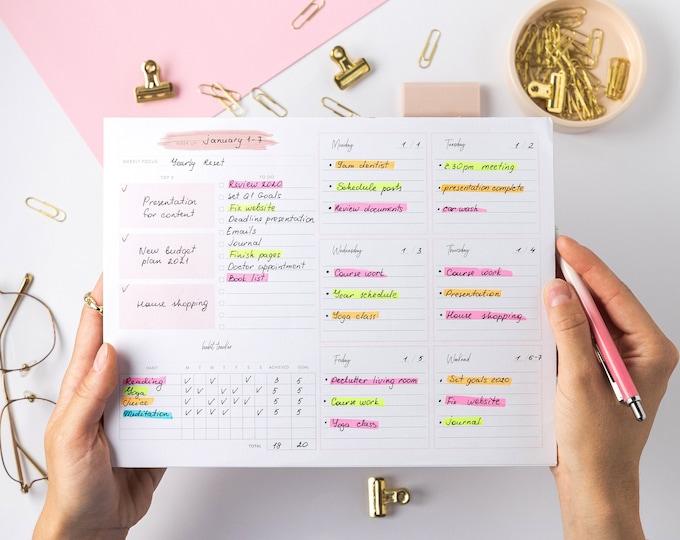 WEEK OF: January 1-7
WEEKLY FOCUS: Yearly Reset
TOP 3
Presentation
for content
New budget
plan 2021
House shopping
TO DO
Review 2020
Set Q1 Goals
Fix website
Deadline presentation
Emails
Journal
Finish pages
Doctor appointment
Book list
habit tracker
HABIT M T W T F S S ACHIEVED GOAL
Reading 3 5
Yoga 5 5
Juice 5 5
Meditation 5 5
TOTAL 18 20
Monday 1/1
9am dentist
Schedule posts
Review documents
Tuesday 1/2
2:30pm meeting
presentation complete
car wash
Wednesday 1/3
Course work
Year schedule
Yoga class
Thursday 1/4
Course work
Presentation
House shopping
Friday 1/5
Declutter living room
Course work
Yoga class
Weekend 1/6-7
Set goals 2020
Fix website
Journal